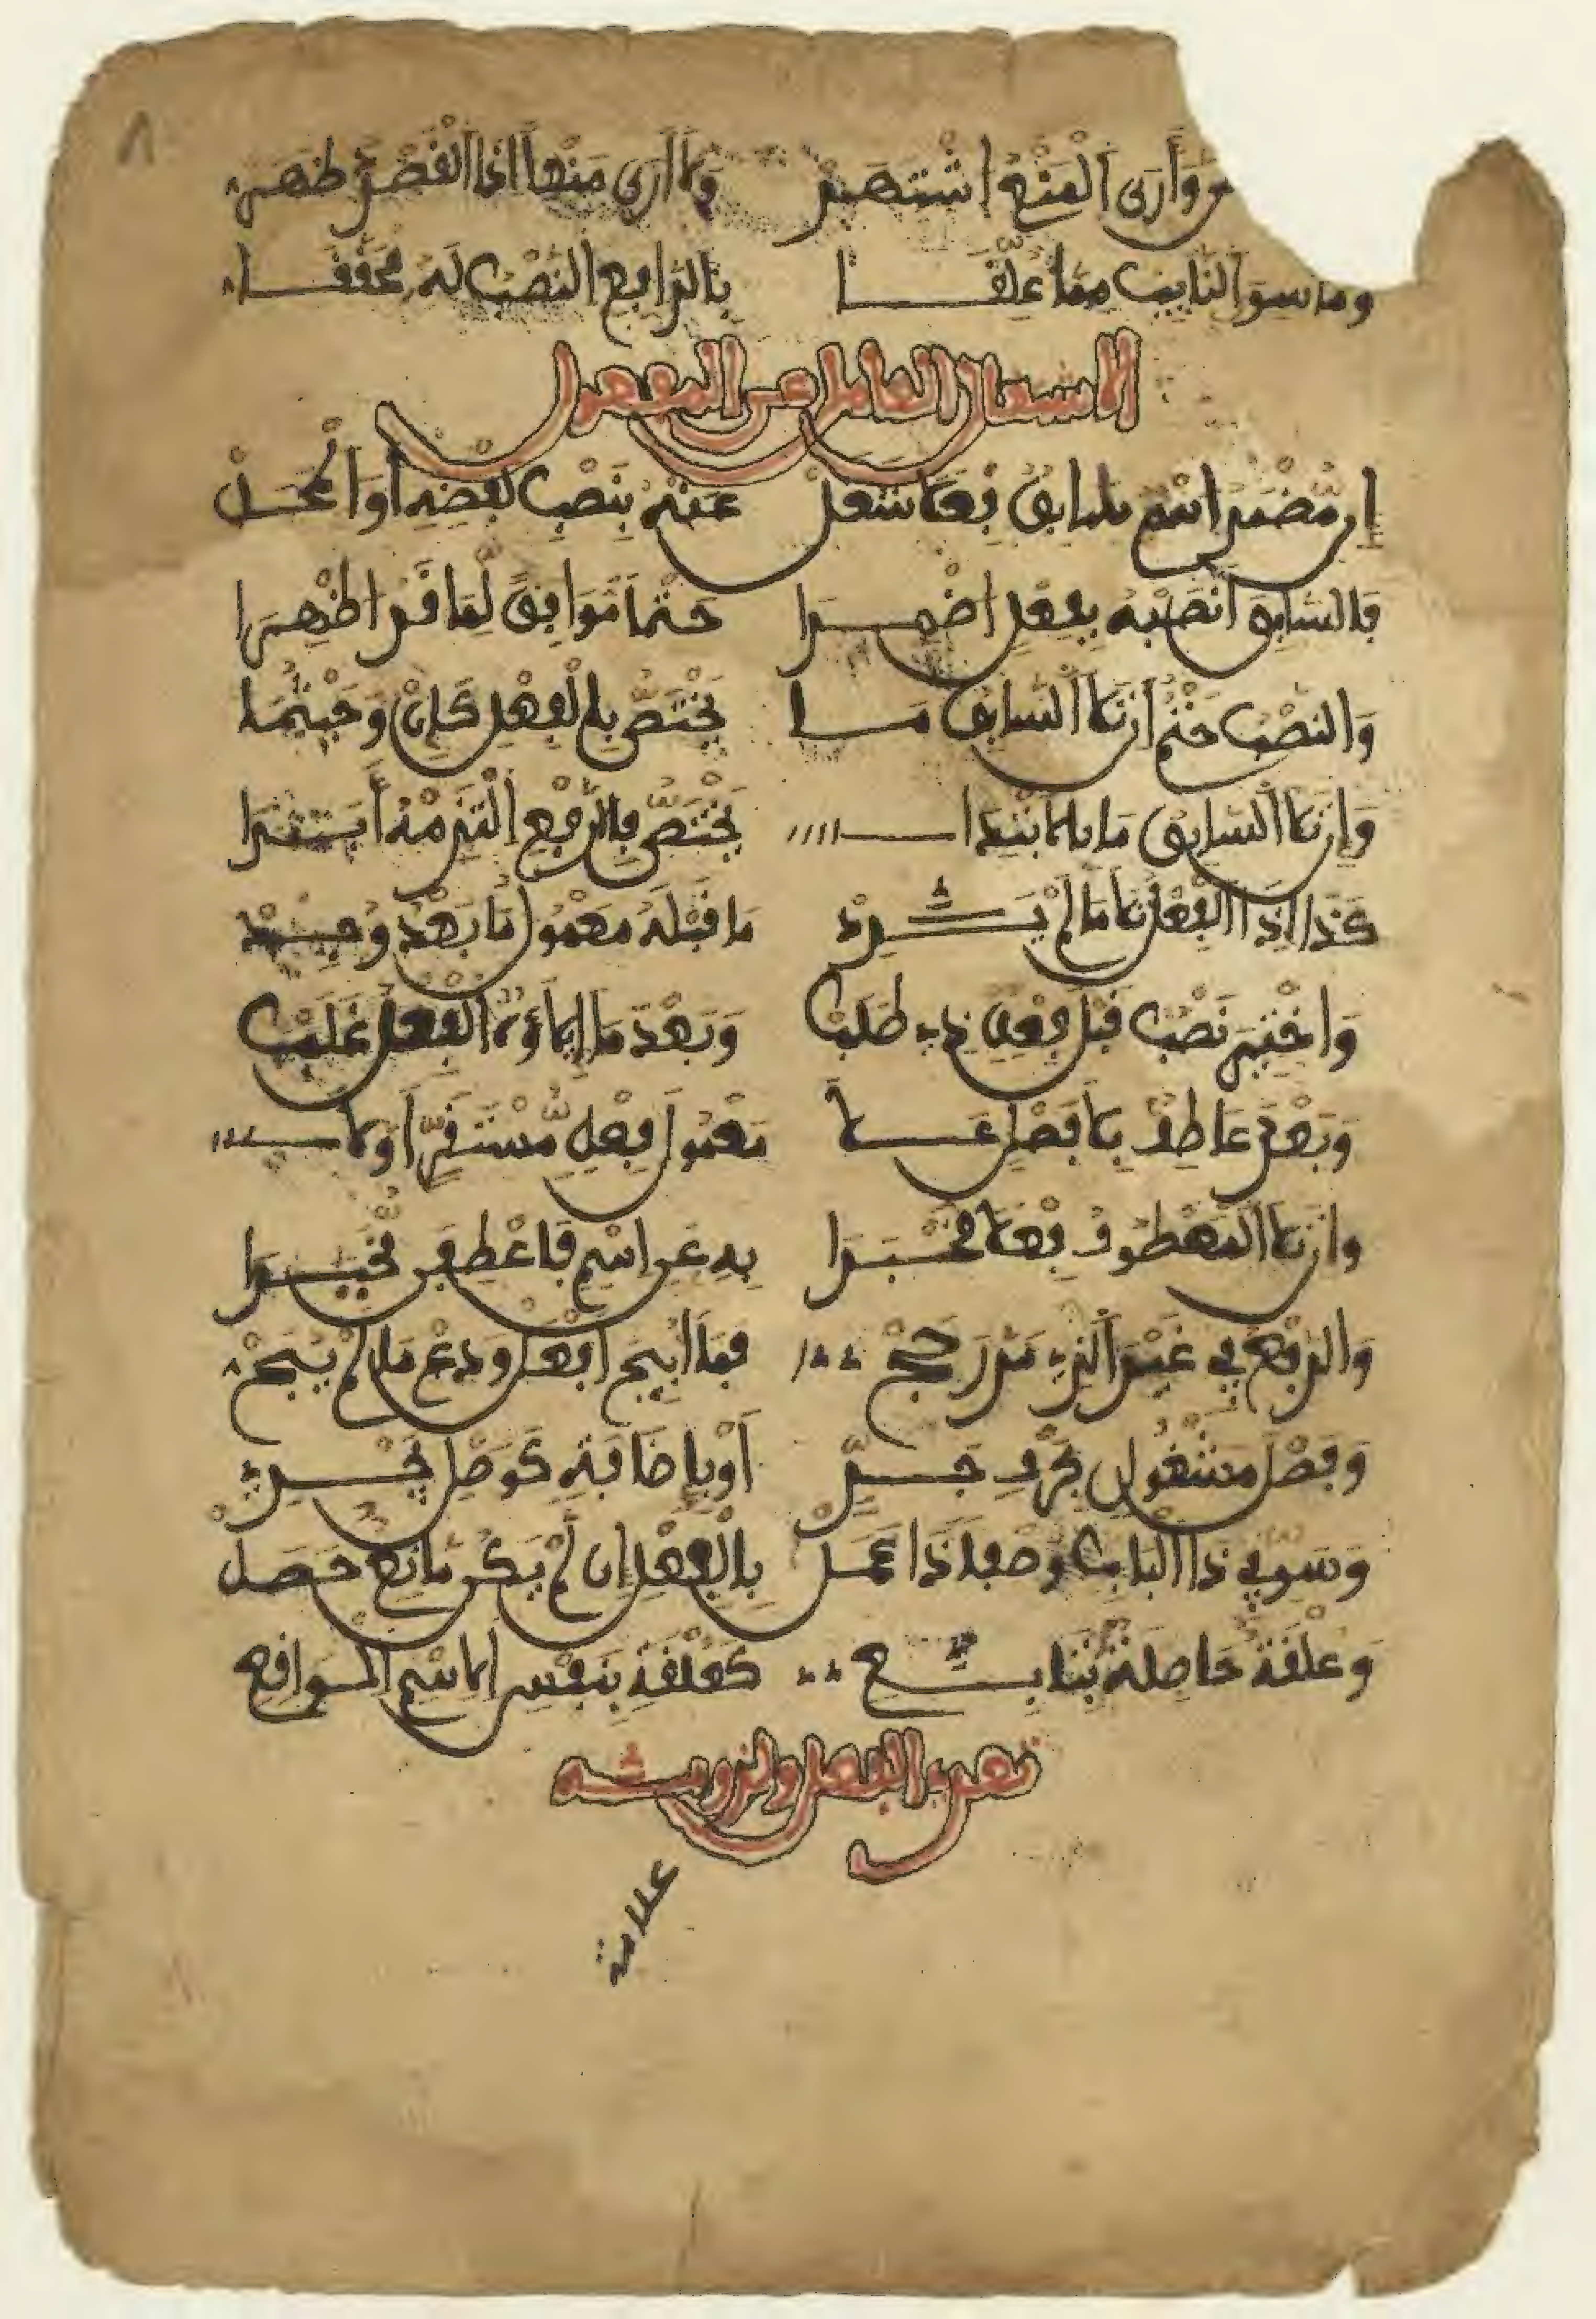 ٨
وأرى المنع اشتهر ولا أرى منعا إذا القصد ظهر
وما سوى النايب مما علقا بالرافع النصب له محققا
الاشتغال العامل عن المعمول
إن مضمر اسم سابق فعلا شغل عنه بنصب لفظه أو المحل
فالسابق انصبه بفعل أضمرا حتما موافق لما قد أظهرا
والنصب حتم إن تلا السابق ما يختص بالفعل كإن وحيثما
وإن تلا السابق ما بالابتدا يختص فالرفع التزمه أبدا
كذا إذا الفعل تلا ما لم يرد ما قبله معمول ما بعد وجد
واختير نصب قبل فعل ذي طلب وبعد ما إيلاؤه الفعل غلب
وبعد عاطف بلا فصل على معمول فعل مستقر أولا
وإن تلا المعطوف فعلا مخبرا به عن اسم فاعطفن مخيرا
والرفع في غير الذي مر رجح فما أبيح افعل ودع ما لم يبح
وفصل مشغول بحرف جر أو بإضافة كوصل يجري
وسو في ذا الباب وصفا ذا عمل بالفعل إن لم يك مانع حصل
وعلقة حاصلة بتابع كعلقة بنفس الاسم الواقع
تعدي الفعل ولزومه
علامة